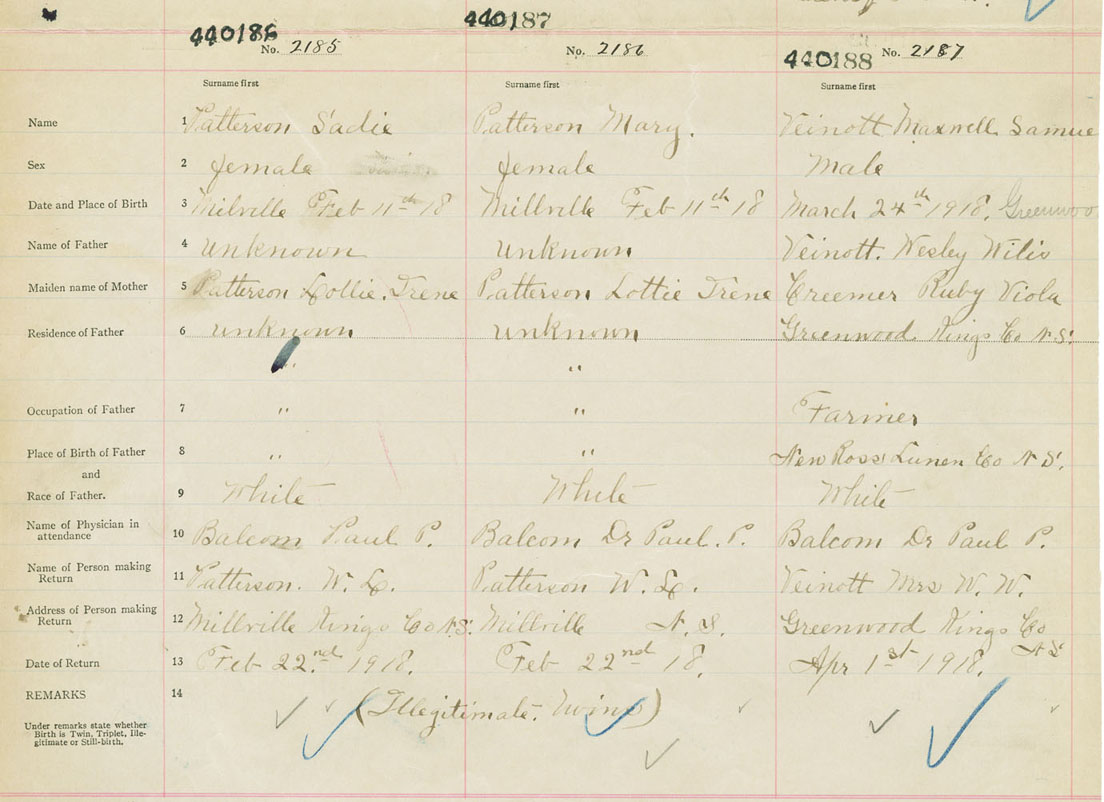 440186 440187
No. 2185 No. 2186 440188 No. 2187
Surname first Surname first Surname first
Name 1 Patterson Sadie Patterson Mary. Veinott Maxwell Samue
Sex 2 female female Male
Date and Place of Birth 3 Milville Feb 11th 18 Millville Feb 11th 18 March 24th 1918. Greenwoo
Name of Father 4 Unknown Unknown Veinott. Wesley Wilis
Maiden name of Mother 5 Patterson Lottie. Irene Patterson Lottie Irene Creemer Ruby Viola
Residence of Father 6 unknown Unknown Greenwood Kings Co N.S.
" "
Occupation of Father 7 " " Farmer
Place of Birth of Father 8 " " New Ross Lunen Co N S.
and
Race of Father. 9 White White White
Name of Physician in
attendance 10 Balcom Paul P. Balcom Dr Paul. P. Balcom Dr Paul P.
Name of Person making
Return 11 Patterson. W. L. Patterson W. L. Veinott Mrs W. W.
Address of Person making
Return 12 Millville Kings Co N.S. Millville N. S. Greenwood Kings Co
N S
Date of Return 13 Feb 22nd. 1918. Feb 22nd 18. Apr 1st 1918.
REMARKS 14 (Illegitimate. Twins)
Under remarks state whether
Birth is Twin, Triplet, Ille-
gitimate or Still-birth.